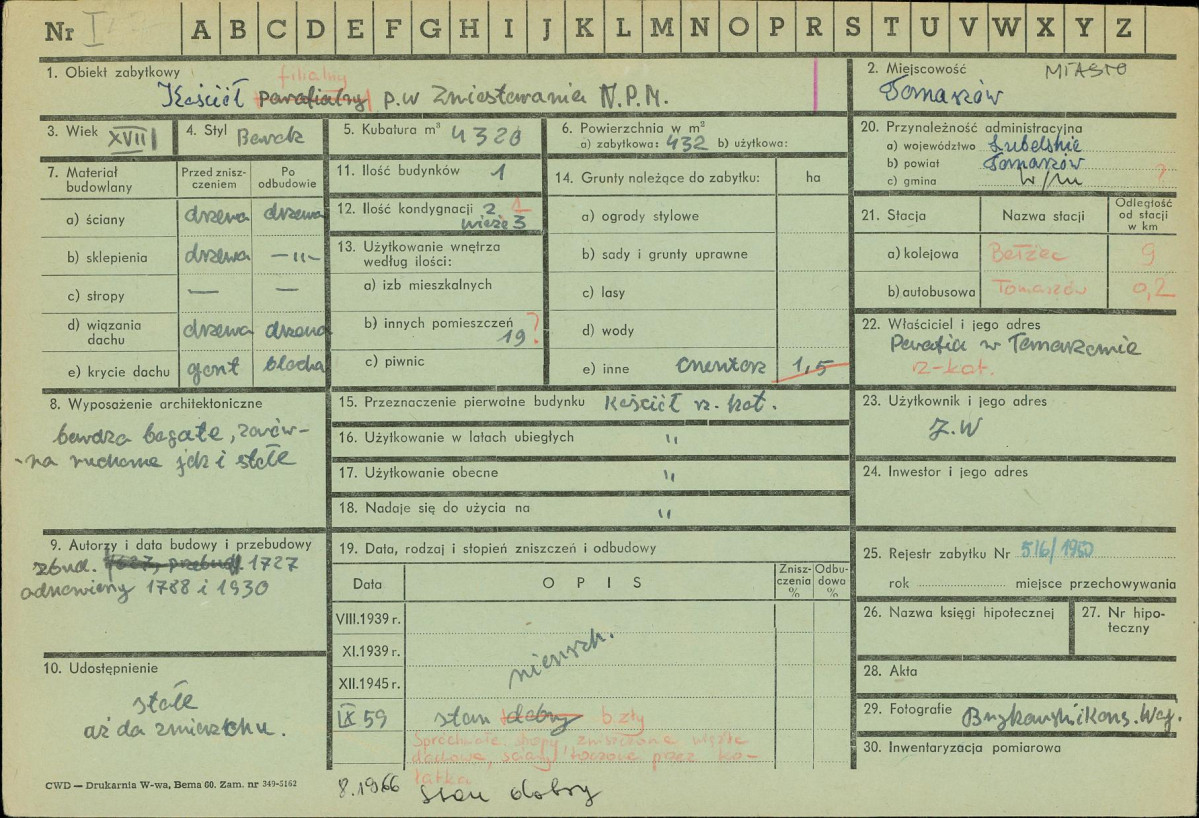 Nr I A B C D E F G H I J K L M N O P R S T U V W X Y Z
1. Obiekt zabytkowy
filialny
Kościół parafialny p.w Zwiastowania N.P.M.
2. Miejscowość MIASTO
Tomaszów
3. Wiek XVIII
4. Styl Barok
5. Kubatura m³ 4320
6. Powierzchnia w m²
a) zabytkowa: 432 b) użytkowa:
20. Przynależność administracyjna
a) województwo Lubelskie
b) powiat Tomaszów
c) gmina w/m ?
7. Materiał budowlany
Przed znisz-
czeniem
Po
odbudowie
a) ściany drzewo drzewo
b) sklepienia drzewo —„—
c) stropy — —
d) wiązania
dachu drzewo drzewo
e) krycie dachu gont blacha
11. Ilość budynków 1
12. Ilość kondygnacji 2 1
wieże 3
13. Użytkowanie wnętrza
według ilości:
a) izb mieszkalnych
b) innych pomieszczeń ?
19
c) piwnic
14. Grunty należące do zabytku: ha
a) ogrody stylowe
b) sady i grunty uprawne
c) lasy
d) wody
e) inne cmentarz 1,5
21. Stacja Nazwa stacji
Odległość
od stacji
w km
a) kolejowa Bełżec 9
b) autobusowa Tomaszów 0,2
22. Właściciel i jego adres
Parafia w Tomaszowie
rz-kat.
8. Wyposażenie architektoniczne
bardzo bogate, zarów-
-no ruchome jak i stałe
15. Przeznaczenie pierwotne budynku Kościół rz. kat.
16. Użytkowanie w latach ubiegłych "
17. Użytkowanie obecne "
18. Nadaje się do użycia na "
23. Użytkownik i jego adres
J.W
24. Inwestor i jego adres
9. Autorzy i data budowy i przebudowy
zbud. 1627, przebud. 1727
odnowiony 1788 i 1930
19. Data, rodzaj i stopień zniszczeń i odbudowy
Data OPIS
Znisz-
czenia
%
Odbu-
dowa
%
VIII.1939 r.
XI.1939 r.
XII.1945 r.
nieuszk.
IX 59 stan dobry b. zły
Spróchniałe stropy, zniszczone więźby
dachowe, ściany toczone przez ko-
łatka
8.1966 stan dobry
25. Rejestr zabytku Nr 516/1950
rok miejsce przechowywania
26. Nazwa księgi hipotecznej
27. Nr hipo-
teczny
10. Udostępnienie
stałe
aż do zmierzchu.
28. Akta
29. Fotografie Bużkowski Kons. Woj.
30. Inwentaryzacja pomiarowa
CWD — Drukarnia W-wa, Bema 60. Zam. nr 349-5162